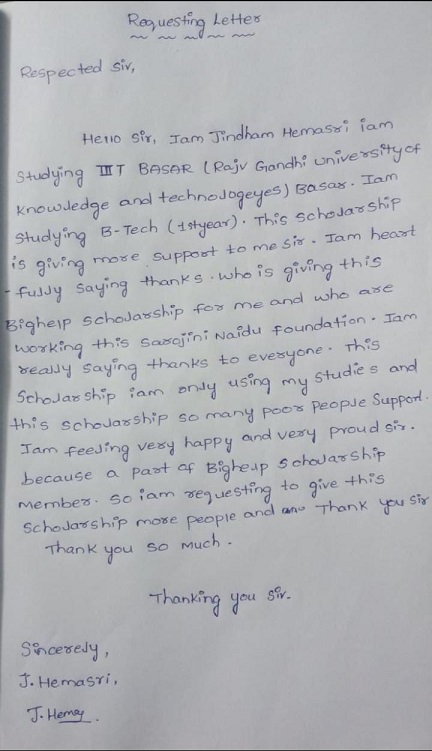 Requesting Letter
Respected Sir,
Hello Sir, Iam Jindham Hemasri iam
Studying IIIT BASAR (Rajv Gandhi university of
knowledge and technologeyes) Basar. Iam
Studying B-Tech (1styear). This scholarship
is giving more support to me sir. Iam heart
-fully saying thanks. who is giving this
Bighelp scholarship for me and who are
working this sarojini Naidu foundation. Iam
really saying thanks to everyone. This
Scholarship iam only using my studies and
this scholarship so many poor people support.
Iam feeling very happy and very proud sir.
because a part of Bighelp scholarship
member. so iam requesting to give this
scholarship more people and Thank you sir
Thank you so much.
Thanking you sir.
Sincerely,
J. Hemasri,
J. Hema